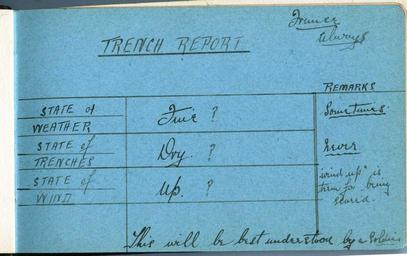 France
Always
TRENCH REPORT
REMARKS
STATE of WEATHER Fine ? Sometimes.
STATE of TRENCHES Dry. ? Never
STATE of WIND Up. ? "wind up" is
term for being
scared.
This will be best understood by a Soldier